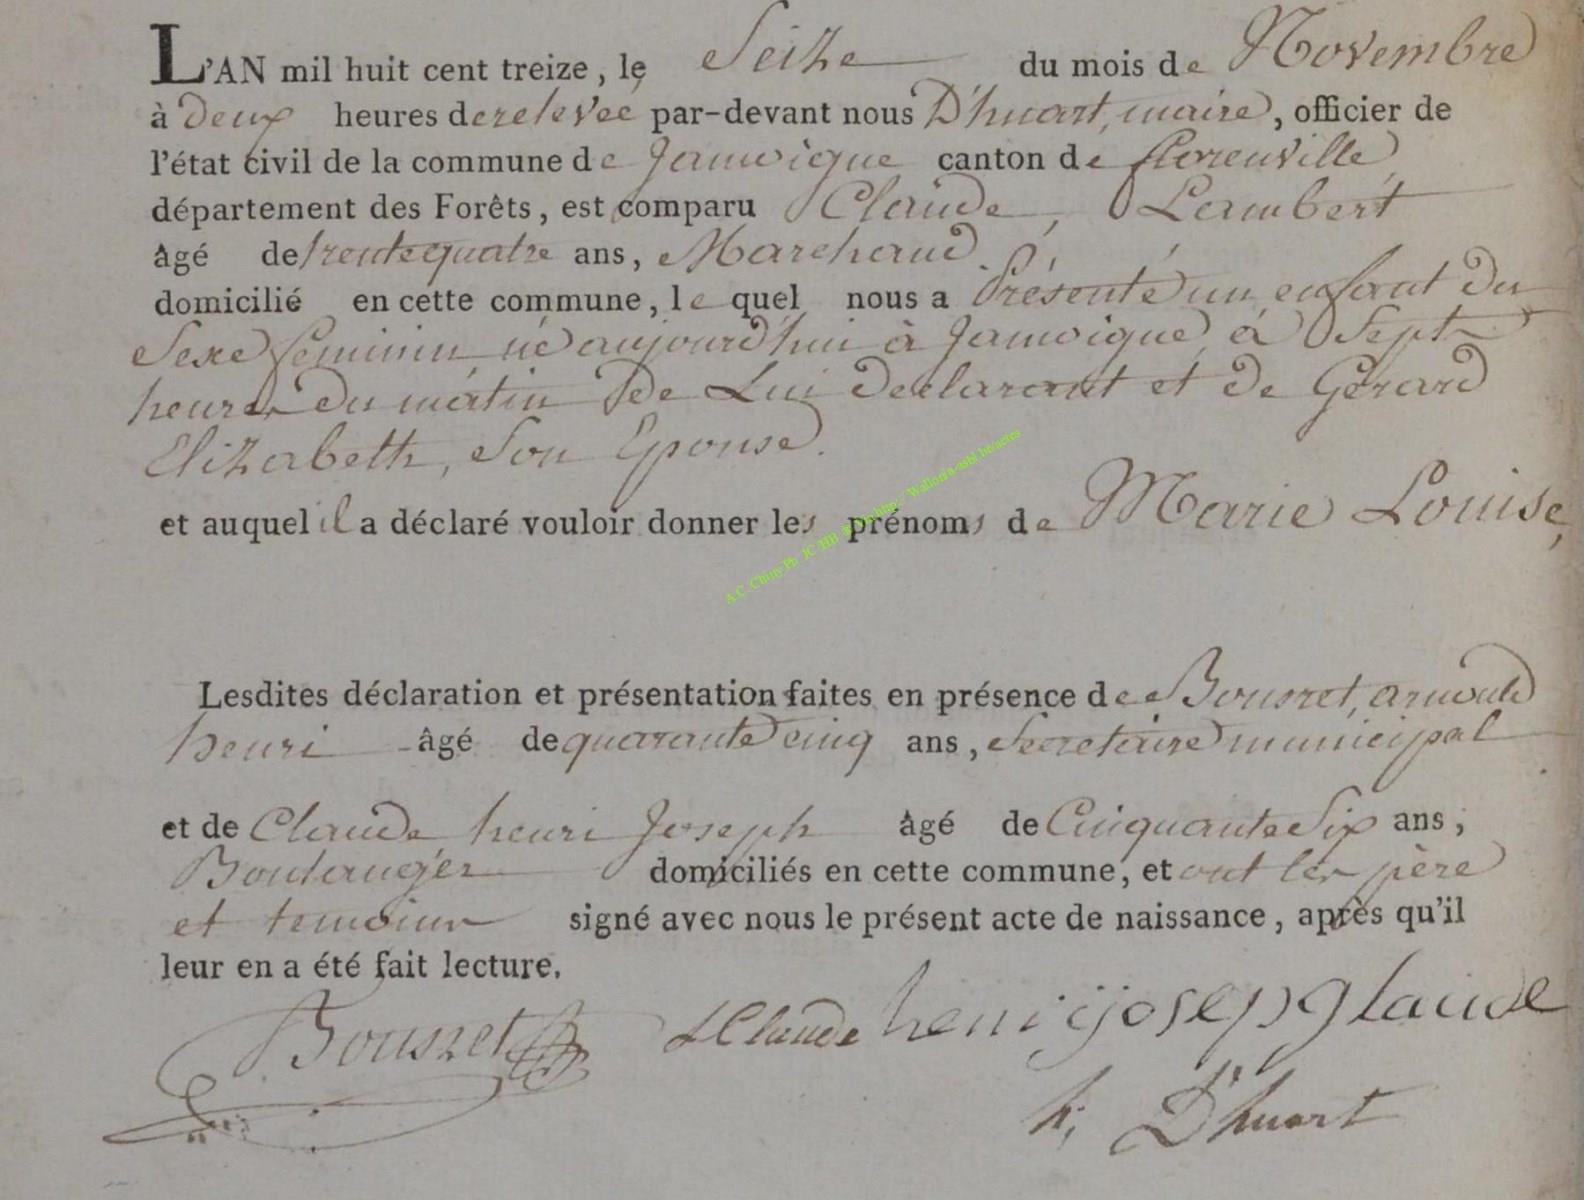 L'AN mil huit cent treize, le Seize du mois de Novembre
à deux heures de relevée par-devant nous D'huart, maire, officier de
l'état civil de la commune de Jamoigne canton de florenville,
département des Forêts, est comparu Claude, Lambert
âgé de trente quatre ans, Marchand
domicilié en cette commune, le quel nous a Présenté un enfant du
Sexe feminin né aujourd'hui à Jamoigne, à Sept
heures du matin de Lui declarant et de Gérard
Elizabeth, Son Epouse.
et auquel il a déclaré vouloir donner les prénoms de Marie Louise,
Lesdites déclaration et présentation faites en présence de Bousret, arnould
henri âgé de quarante cinq ans, Secretaire municipal
et de Claude henri Joseph âgé de Cinquante Six ans,
Boulanger domiciliés en cette commune, et ont les père
et temoins signé avec nous le présent acte de naissance, après qu'il
leur en a été fait lecture.
Bousret L Claude henri ijosep glaude
h. D'huart